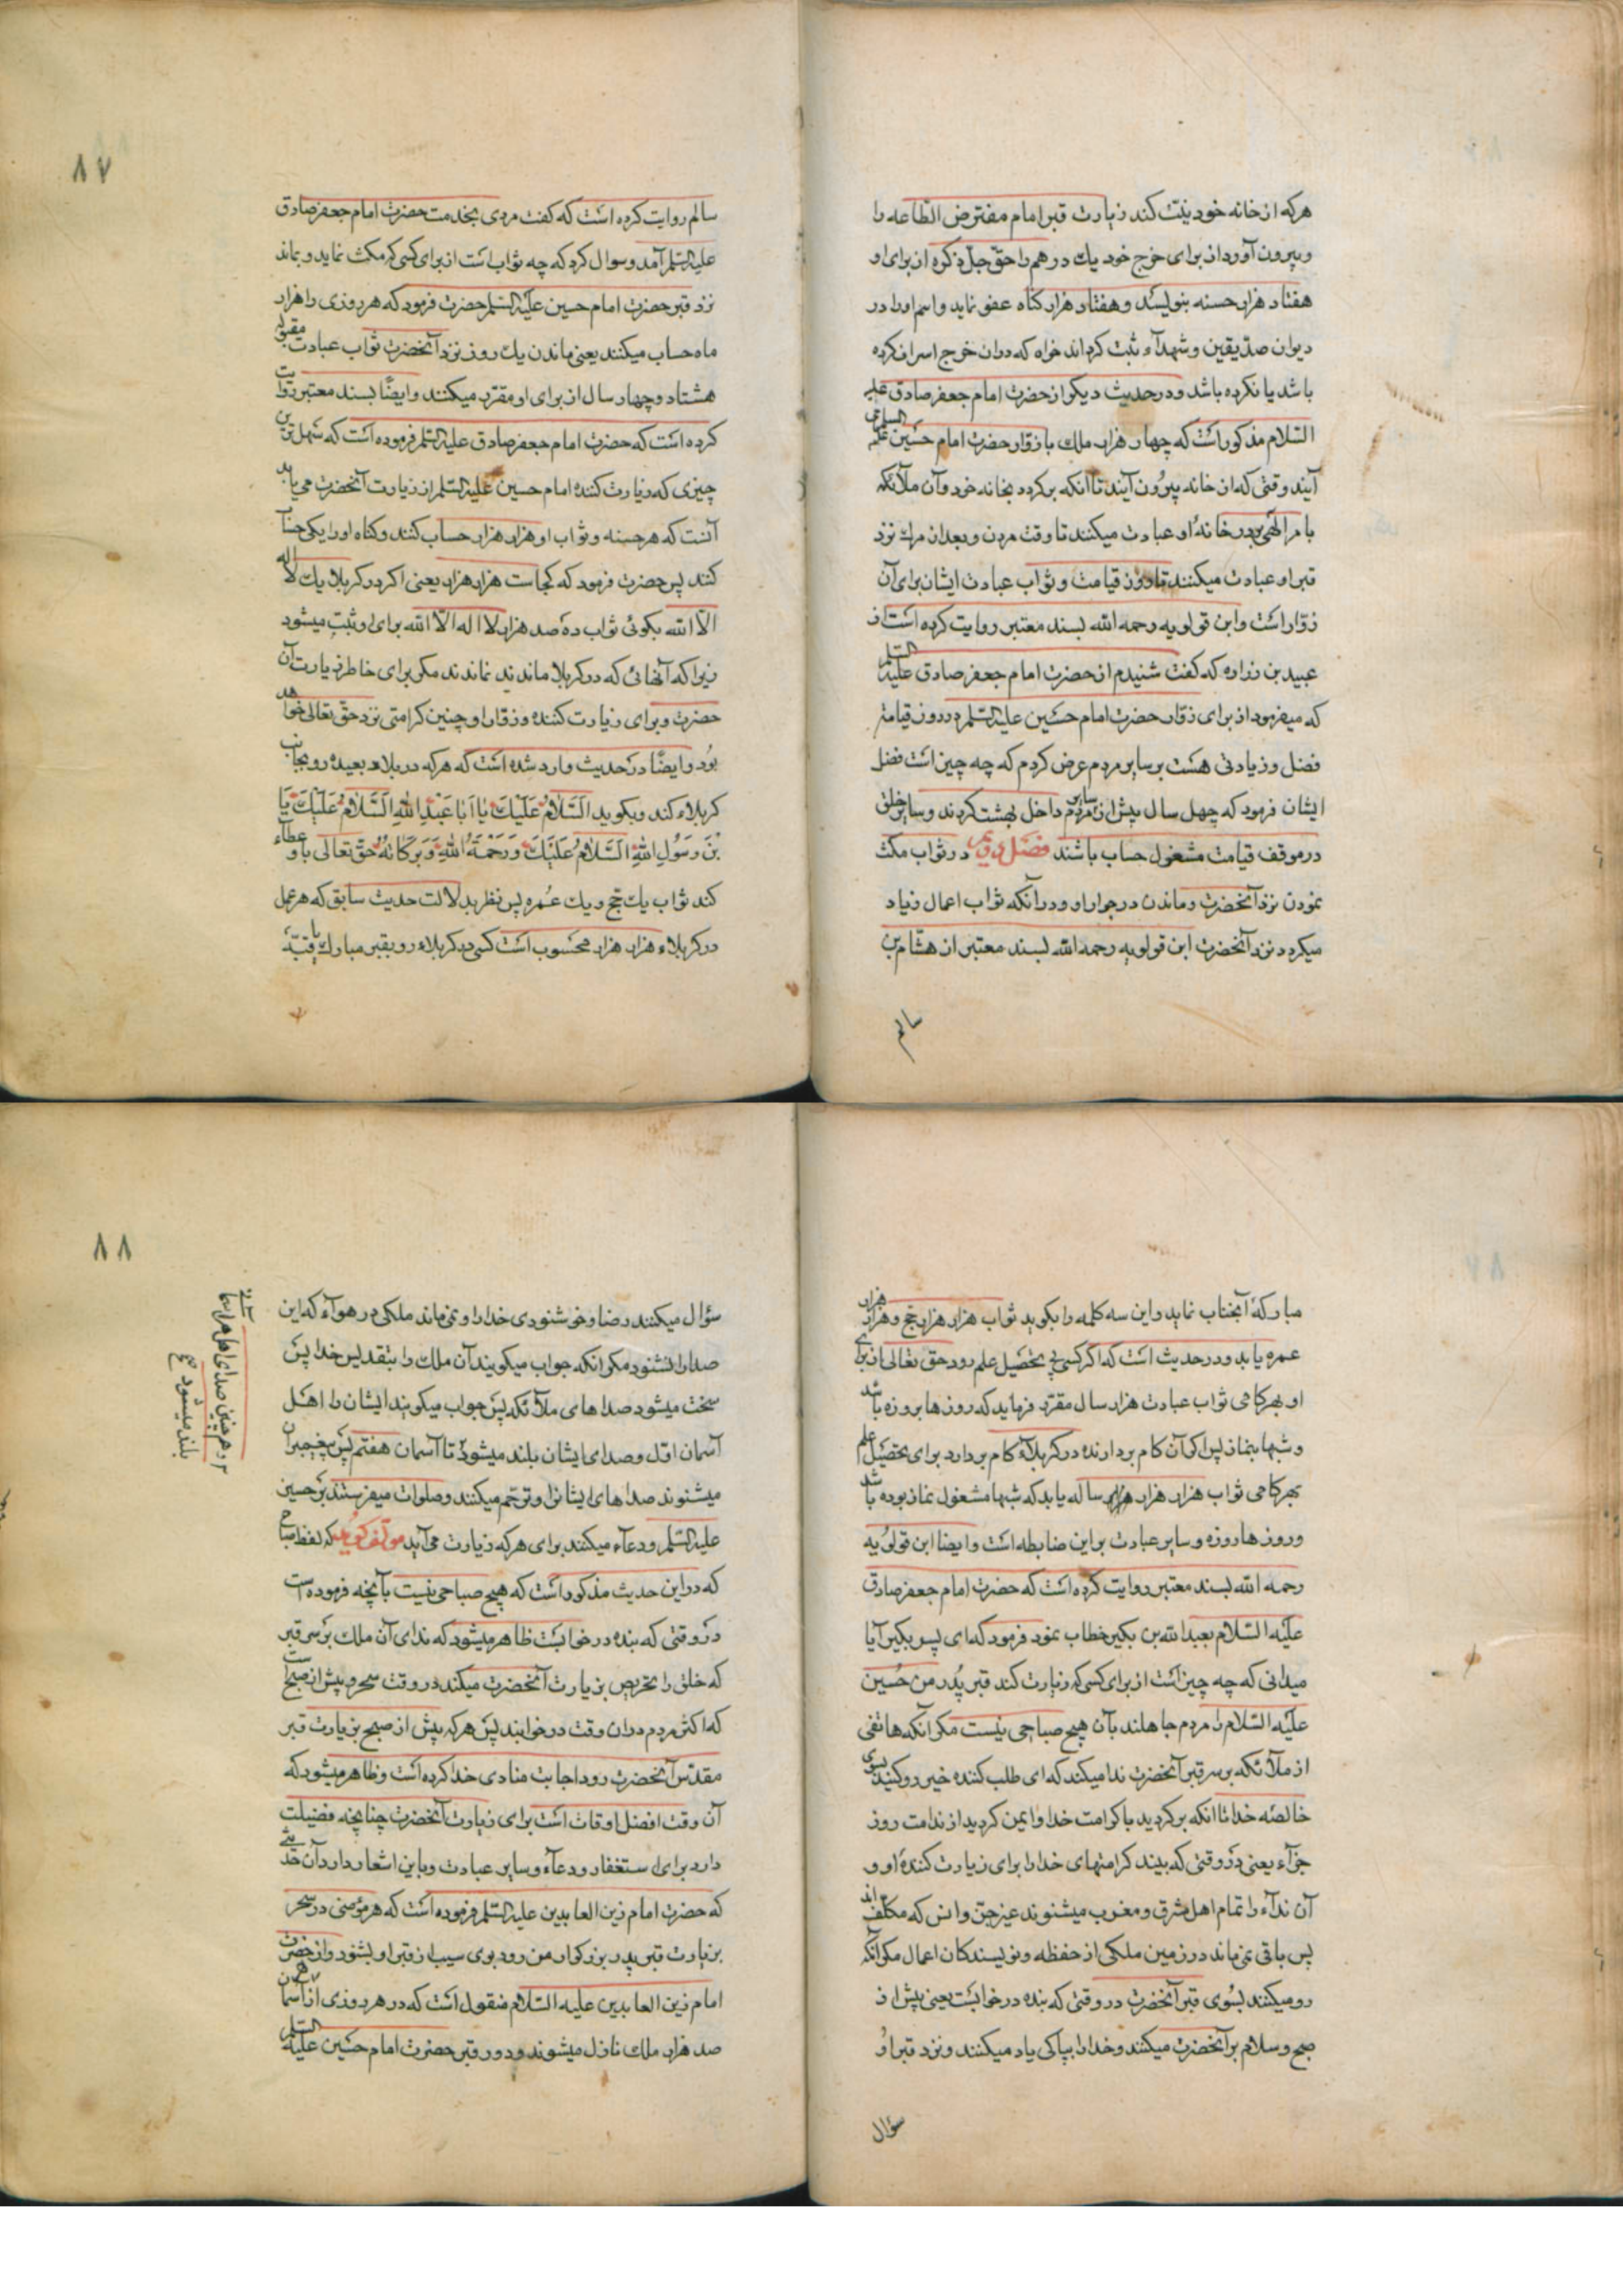 هرکه از خانه خود نیت کند زیارت قبر امام مفترض الطّاعه را
و بیرون آورد از برای خرج خود یك درهم را حق جلّ ذکره از برای او
هفتاد هزار حسنه بنویسد و هفتاد هزار کناه عفو نماید و اسم او را در
دیوان صدّیقین و شهدآء ثبت کرداند خواه که در ان خرج اسراف کرده
باشد یا نکرده باشد و در حدیث دیکر از حضرت امام جعفر صادق علیه
السّلام مذکور است که چهار هزار ملك با زوّار حضرت امام حسین علیه السلام می
آیند وقتی که از خانه بیرون آیند تا آنکه برکردد بخانه خود و آن ملآئکه
بامر الهی بر در خانهٔ او عبادت میکنند تا وقت مردن و بعد از مرك نزد
قبر او عبادت میکنند تا روز قیامت و ثواب عبادت ایشان برای آن
زوّار است و ابن قولویه رحمه الله بسند معتبر روایت کرده است از
عبید بن زراره که کفت شنیدم از حضرت امام جعفر صادق علیه السّلم
که میفرمود از برای زوّار حضرت امام حسین علیه السّلم در روز قیامت
فضل و زیادتی هست بر سایر مردم عرض کردم که چه چیز است فضل
ایشان فرمود که چهل سال پیش از سایر مردم داخل بهشت کردند و سایر خلق
در موقف قیامت مشغول حساب باشند فصل در ثواب مکث
نمودن نزد آنحضرت و ماندن در جوار او و در آنکه ثواب اعمال زیاد
میکردد نزد آنحضرت ابن قولویه رحمه الله بسند معتبر از هشام بن
سالم
۸۷
سالم روایت کرده است که کفت مردی بخدمت حضرت امام جعفر صادق
علیه السّلم آمد و سوال کرد که چه ثواب است از برای کسی که مکث نماید و بماند
نزد قبر حضرت امام حسین علیه السّلم حضرت فرمود که هر روزی را هزار
ماه حساب میکنند یعنی ماندن یك روز نزد آنحضرت ثواب عبادت مقبوله
هشتاد و چهار سال از برای او مقرّر میکنند و ایضًا بسند معتبر روایت
کرده است که حضرت امام جعفر صادق علیه السّلم فرموده است که سهل ترین
چیزی که زیارت کننده امام حسین علیه السّلم از زیارت آنحضرت می یابد
آنست که هر حسنه و ثواب او هزار هزار حساب کنند و کناه او را یکی حساب
کنند پس حضرت فرمود که کجاست هزار هزار یعنی اکر در کربلا یك لا اله
الّا الله بکوئی ثواب ده صد هزار لا اله الّا الله برای او ثبت میشود
زیرا که آنهائی که در کربلا ماندند نماندند مکر برای خاطر زیارت آن
حضرت و برای زیارت کننده و زوّار او چنین کرامتی نزد حق تعالی خواهد
بود و ایضًا در حدیث وارد شده است که هرکه در بلاد بعیده رو بجانب
کربلاء کند و بکوید اَلسَّلامُ عَلَیْكَ یا اَبا عَبْدِ اللهِ اَلسَّلامُ عَلَیْكَ یَا
بْنَ رَسُولِ اللهِ اَلسَّلامُ عَلَیْكَ وَرَحْمَةُ اللهِ وَبَرَکاتُهُ حق تعالی باو عطآء
کند ثواب یك حج و یك عمره پس نظر بدلالت حدیث سابق که هر عمل
در کربلاء هزار هزار محسوب است کسی در کربلاء رو بقبر مبارك یا قبّهٔ
مبارکهٔ آنجناب نماید و این سه کلمه را بکوید ثواب هزار هزار حج و هزار هزار
عمره یابد و در حدیث است که اکر کسی پی تحصیل علم رود حق تعالی از برای
او بهر کامی ثواب عبادت هزار سال مقرّر فرماید که روزها بروزه باشد
و شبها بنماز پس اکر آن کام بردارنده در کربلآء کام بردارد برای تحصیل علم
بهر کامی ثواب هزار هزار ساله یابد که شبها مشغول نماز بوده باشد
و روزها روزه و سایر عبادت بر این ضابطه است و ایضا ابن قولویه
رحمه الله بسند معتبر روایت کرده است که حضرت امام جعفر صادق
علیه السّلام بعبد الله بن بکیر خطاب نمود فرمود که ای پسر بکیر آیا
میدانی که چه چیز است از برای کسی که زیارت کند قبر پدر من حسین
علیه السّلام را مردم جاهلند بآن هیچ صباحی نیست مکر انکه هاتفی
از ملآئکه بر سر قبر آنحضرت ندا میکند که ای طلب کننده خیر رو کنید بسوی
خالصه خدا تا انکه برکردید با کرامت خدا و ایمن کردید از ندامت روز
جزآء یعنی در وقتی که بیند کرامتهای خدا را برای زیارت کنندهٔ او و
آن ندآء را تمام اهل مشرق و مغرب میشنوند غیر جن و انس که مکلف اند
پس باقی نمی ماند در زمین ملکی از حفظه و نویسندکان اعمال مکر آنکه
رو میکنند بسوی قبر آنحضرت در وقتی که بنده در خوابست یعنی پیش از
صبح و سلام بر آنحضرت میکنند و خدا را بپاکی یاد میکنند و نزد قبر او
سؤال
۸۸
سؤال میکنند رضا و خوشنودی خدا را و نمی ماند ملکی در هوآء که این
صدا را نشنود مکر انکه جواب میکویند آن ملك را بتقدیس خدا پس
سخت میشود صداهای ملآئکه پس جواب میکویند ایشان را اهل
آسمان اوّل و صدای ایشان بلند میشود تا آسمان هفتم پس پیغمبران
میشنوند صداهای ایشانرا و ترحّم میکنند و صلوات میفرستند بر حسین
علیه السّلم و دعآء میکنند برای هرکه زیارت می آید مولّف کوید که لفظ صباح
که در این حدیث مذکور است که هیچ صباحی نیست با آنچه فرموده است
در وقتی که بنده در خوابست ظاهر میشود که ندای آن ملك بر سر قبر
که خلق را تحریص بزیارت آنحضرت میکند در وقت سحر و پیش از صبح است
که اکثر مردم در ان وقت در خوابند پس هرکه پیش از صبح بزیارت قبر
مقدّس آنحضرت رود اجابت منادی خدا کرده است و ظاهر میشود که
آن وقت افضل اوقات است برای زیارت آنحضرت چنانچه فضیلت
دارد برای استغفار و دعآء و سایر عبادت و باین اشعار دارد آن حدیثی
که حضرت امام زین العابدین علیه السّلم فرموده است که هر مؤمنی در سحر
بزیارت قبر پدر بزرکوار من رود بوی سیب از قبر او بشنود و از حضرت
امام زین العابدین علیه السّلام منقول است که در هر روزی از آسمان
صد هزار ملك نازل میشوند و دور قبر حضرت امام حسین علیه السّلم
و همچنین صدای اهل هر آسمان
بلند میشود